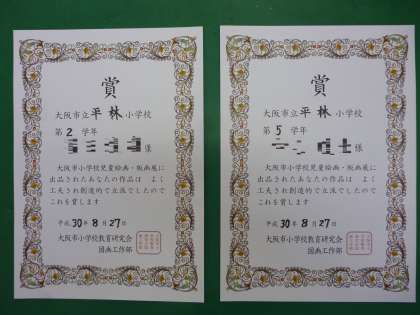 賞
大阪市立平林小学校
第2学年
様
大阪市小学校児童絵画・版画展に
出品されたあなたの作品は よく
工夫され創造的で立派でしたので
これを賞します
平成30年8月27日
大阪市小学校教育研究会
図画工作部
賞
大阪市立平林小学校
第5学年
様
大阪市小学校児童絵画・版画展に
出品されたあなたの作品は よく
工夫され創造的で立派でしたので
これを賞します
平成30年8月27日
大阪市小学校教育研究会
図画工作部